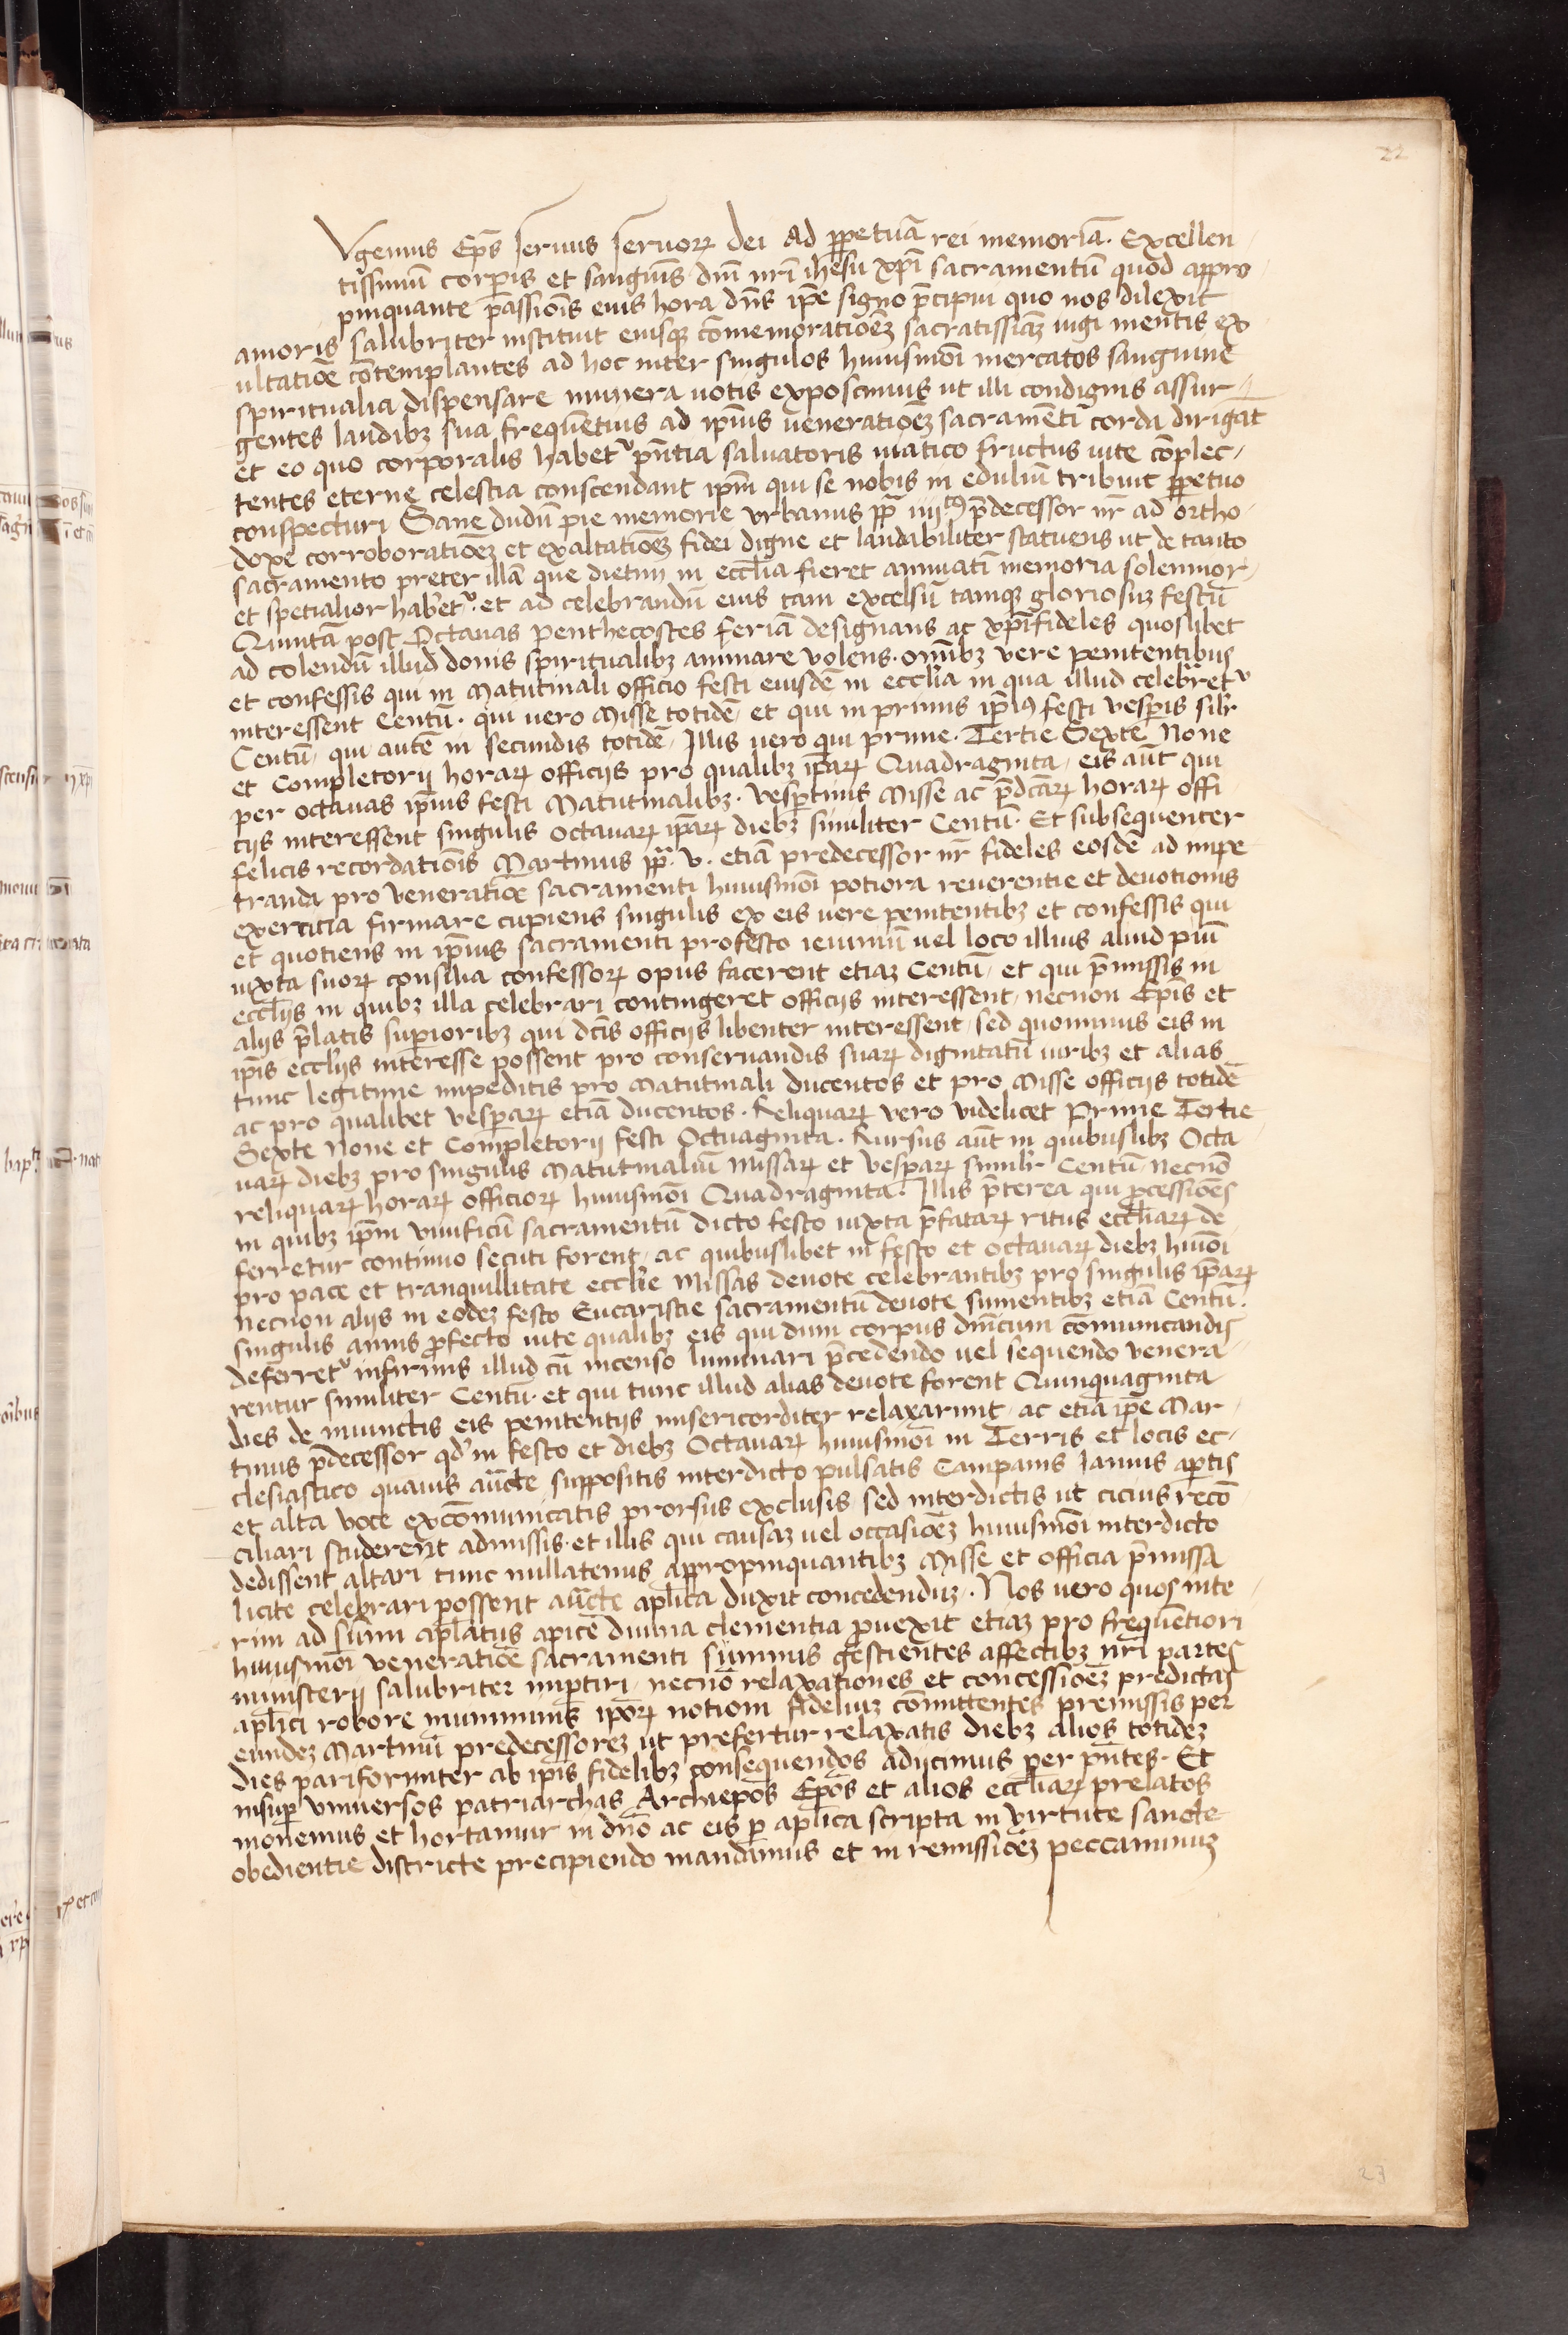 22
Vgenius Ep̄s seruus seruoꝝ dei Ad ꝑpetuā rei memoriā. Excellen
tissimū corꝑis et sanguīs dnī nrī ihesu xp̄i sacramentū quod appro
pinquante passiōis eius hora dn̄s ip̄e signo p̄cipui quo nos dilexit
amoris salubriter instituit eiusqꝫ cōmemoratiōeꝫ sacratissiāꝫ iugi mentis ex
ultatiōe cōtemplantes ad hoc inter singulos huiusmōi mercatos sanguine
spiritualia dispensare munera uotis exposcimus ut illi condignis assur
gentes laudibꝫ sua frequētius ad ip̄ius ueneratiōeꝫ sacramēti corda dirigāt
et eo quo corporalis habetᷣ pn̄tia saluatoris uiatico fructus uite cōplec
tentes eterne celestia conscendant ip̄m qui se nobis in eduliū tribuit ꝑpetuo
conspecturi Sane dudū pie memorie vrbanus pp̄ iiijᵗꝰ p̄decessor nr̄ ad ortho
doxe corroboratiōeꝫ et exaltatiōeꝫ fidei digne et laudabiliter statuens ut de tanto
sacramento preter illā que dietim in eccl̄ia fieret annuati memoria solennior
et spetialior haberetᷣ et ad celebrandū eius tam excelsū tamqꝫ gloriosuꝫ festū
Quintā post Octauas penthecostes feriā designans ac xp̄ifideles quoslibet
ad colendū illud donis spiritualibꝫ animare volens. omībꝫ vere penitentibus
et confessis qui in Matutinali officio festi eiusdē in eccl̄ia in qua illud celebrar̄etᷣ
interessent Centū. qui uero Misse totidē et qui in primis ip̄iꝰ festi vesꝑis silr̄
Centū qui autē in secundis totidē Illis uero qui prime. Tertie Sexte None
et Completorij horaꝝ officijs pro qualibꝫ ip̄aꝝ Quadraginta eis aūt qui
per octauas ip̄ius festi Matutinalibꝫ. vesꝑtinis Misse ac p̄dcāꝝ horaꝝ offi
cijs interessent singulis octauaꝝ ip̄aꝝ diebꝫ similiter Centū. Et subsequenter
felicis recordationis Martinus pp̄ v. etiā predecessor nr̄ fideles eosdē ad impe
tranda pro ueneratiōe sacramenti huiusmōi potiora reuerentie et deuotionis
exercitia firmare cupiens singulis ex eis uere penitentibꝫ et confessis qui
et quotiens in ip̄ius sacramenti profesto ieiuniū uel loco illius aliud piū
iuxta suoꝝ consilia confessoꝝ opus facerent etiaꝫ Centū et qui p̄missis in
eccl̄ijs in quibꝫ illa celebrari contingeret officijs interessent necnon Ep̄is et
alijs p̄latis superioribꝫ qui dcīs officijs libenter interessent sed quominus eis in
ip̄is eccl̄ijs interesse possent pro conseruandis suaꝝ dignitatū iuribꝫ et alias
tunc legitime impeditis pro Matutinali ducentos et pro Misse officijs totidē
ac pro qualibet vesꝑaꝝ etiā ducentos. Reliquaꝝ vero videlicet Prime Tertie
Sexte None et Completorij festi Octuaginta. Rursus aūt in quibuslibꝫ Octa
uaꝝ diebꝫ pro singulis Matutinaliū missaꝝ et vesꝑaꝝ similr̄ Centū necnō
reliquaꝝ horaꝝ officioꝝ huiusmōi Quadraginta. Illis p̄terea qui ꝓcessiōes
in quibꝫ ip̄m viuificū sacramentū dicto festo iuxta p̄fataꝝ ritus eccl̄iaꝝ de
ferretur continuo secuti forent ac quibuslibet in festo et octauaꝝ diebꝫ hmōi
pro pace et tranquillitate eccl̄ie Missas deuote celebrantibꝫ pro singulis ip̄aꝝ
necnon alijs in eodeꝫ festo Eucaristie sacramentū deuote sumentibꝫ etiā Centū.
singulis annis ꝓfecto uite qualibꝫ eis qui dum corpus dnīcum cōmunicandis
deferretᷣ infirmis illud cū incenso luminari p̄cedendo uel sequendo venera
rentur similiter Centū. et qui tunc illud alias deuote forent Quinquaginta
dies de iniunctis eis penitentijs misericorditer relaxarunt ac etiā ip̄e Mar
tinus p̄decessor qd̓ in festo et diebꝫ Octauaꝝ huiusmōi in Terris et locis ec
clesiastico quauis aūcte suppositis interdicto pulsatis Campanis Ianuis aꝑtis
et alta voce excōmunicatis prorsus exclusis sed interdictis ut cicius recō
ciliari studerent admissis. et illis qui causaꝫ uel occasiōeꝫ huiusmōi interdicto
dedissent altari tunc nullatenus appropinquantibꝫ Misse et officia p̄missa
licite celebrari possent aūcte apl̄ica duxit concedenduꝫ. Nos uero quos inte
rim ad sūmi apl̄atus apicē diuina clementia ꝓuexit etiaꝫ pro frequētiori
huiusmōi veneratiōe sacramenti summis gestientes affectibꝫ nrī partes
ministerij salubriter imꝑtiri necnō relaxationes et concessiōeꝫ predictas
apl̄ici robore munimīs ip̄oꝝ notiom fideliuꝫ cōmittentes premissis per
eundeꝫ Martinū predecessoreꝫ ut prefertur relaxatis diebꝫ alios totideꝫ
dies pariformiter ab ip̄is fidelibꝫ consequendos adijcimus per pn̄tes. Et
insuꝑ vniuersos patriarchas Archiepōs Epōs et alios eccl̄iaꝝ prelatos
monemus et hortamur in dnō ac eis ꝑ apl̄ica scripta in virtute sancte
obedientie districte precipiendo mandamus et in remissiōeꝫ peccaminuꝫ
23